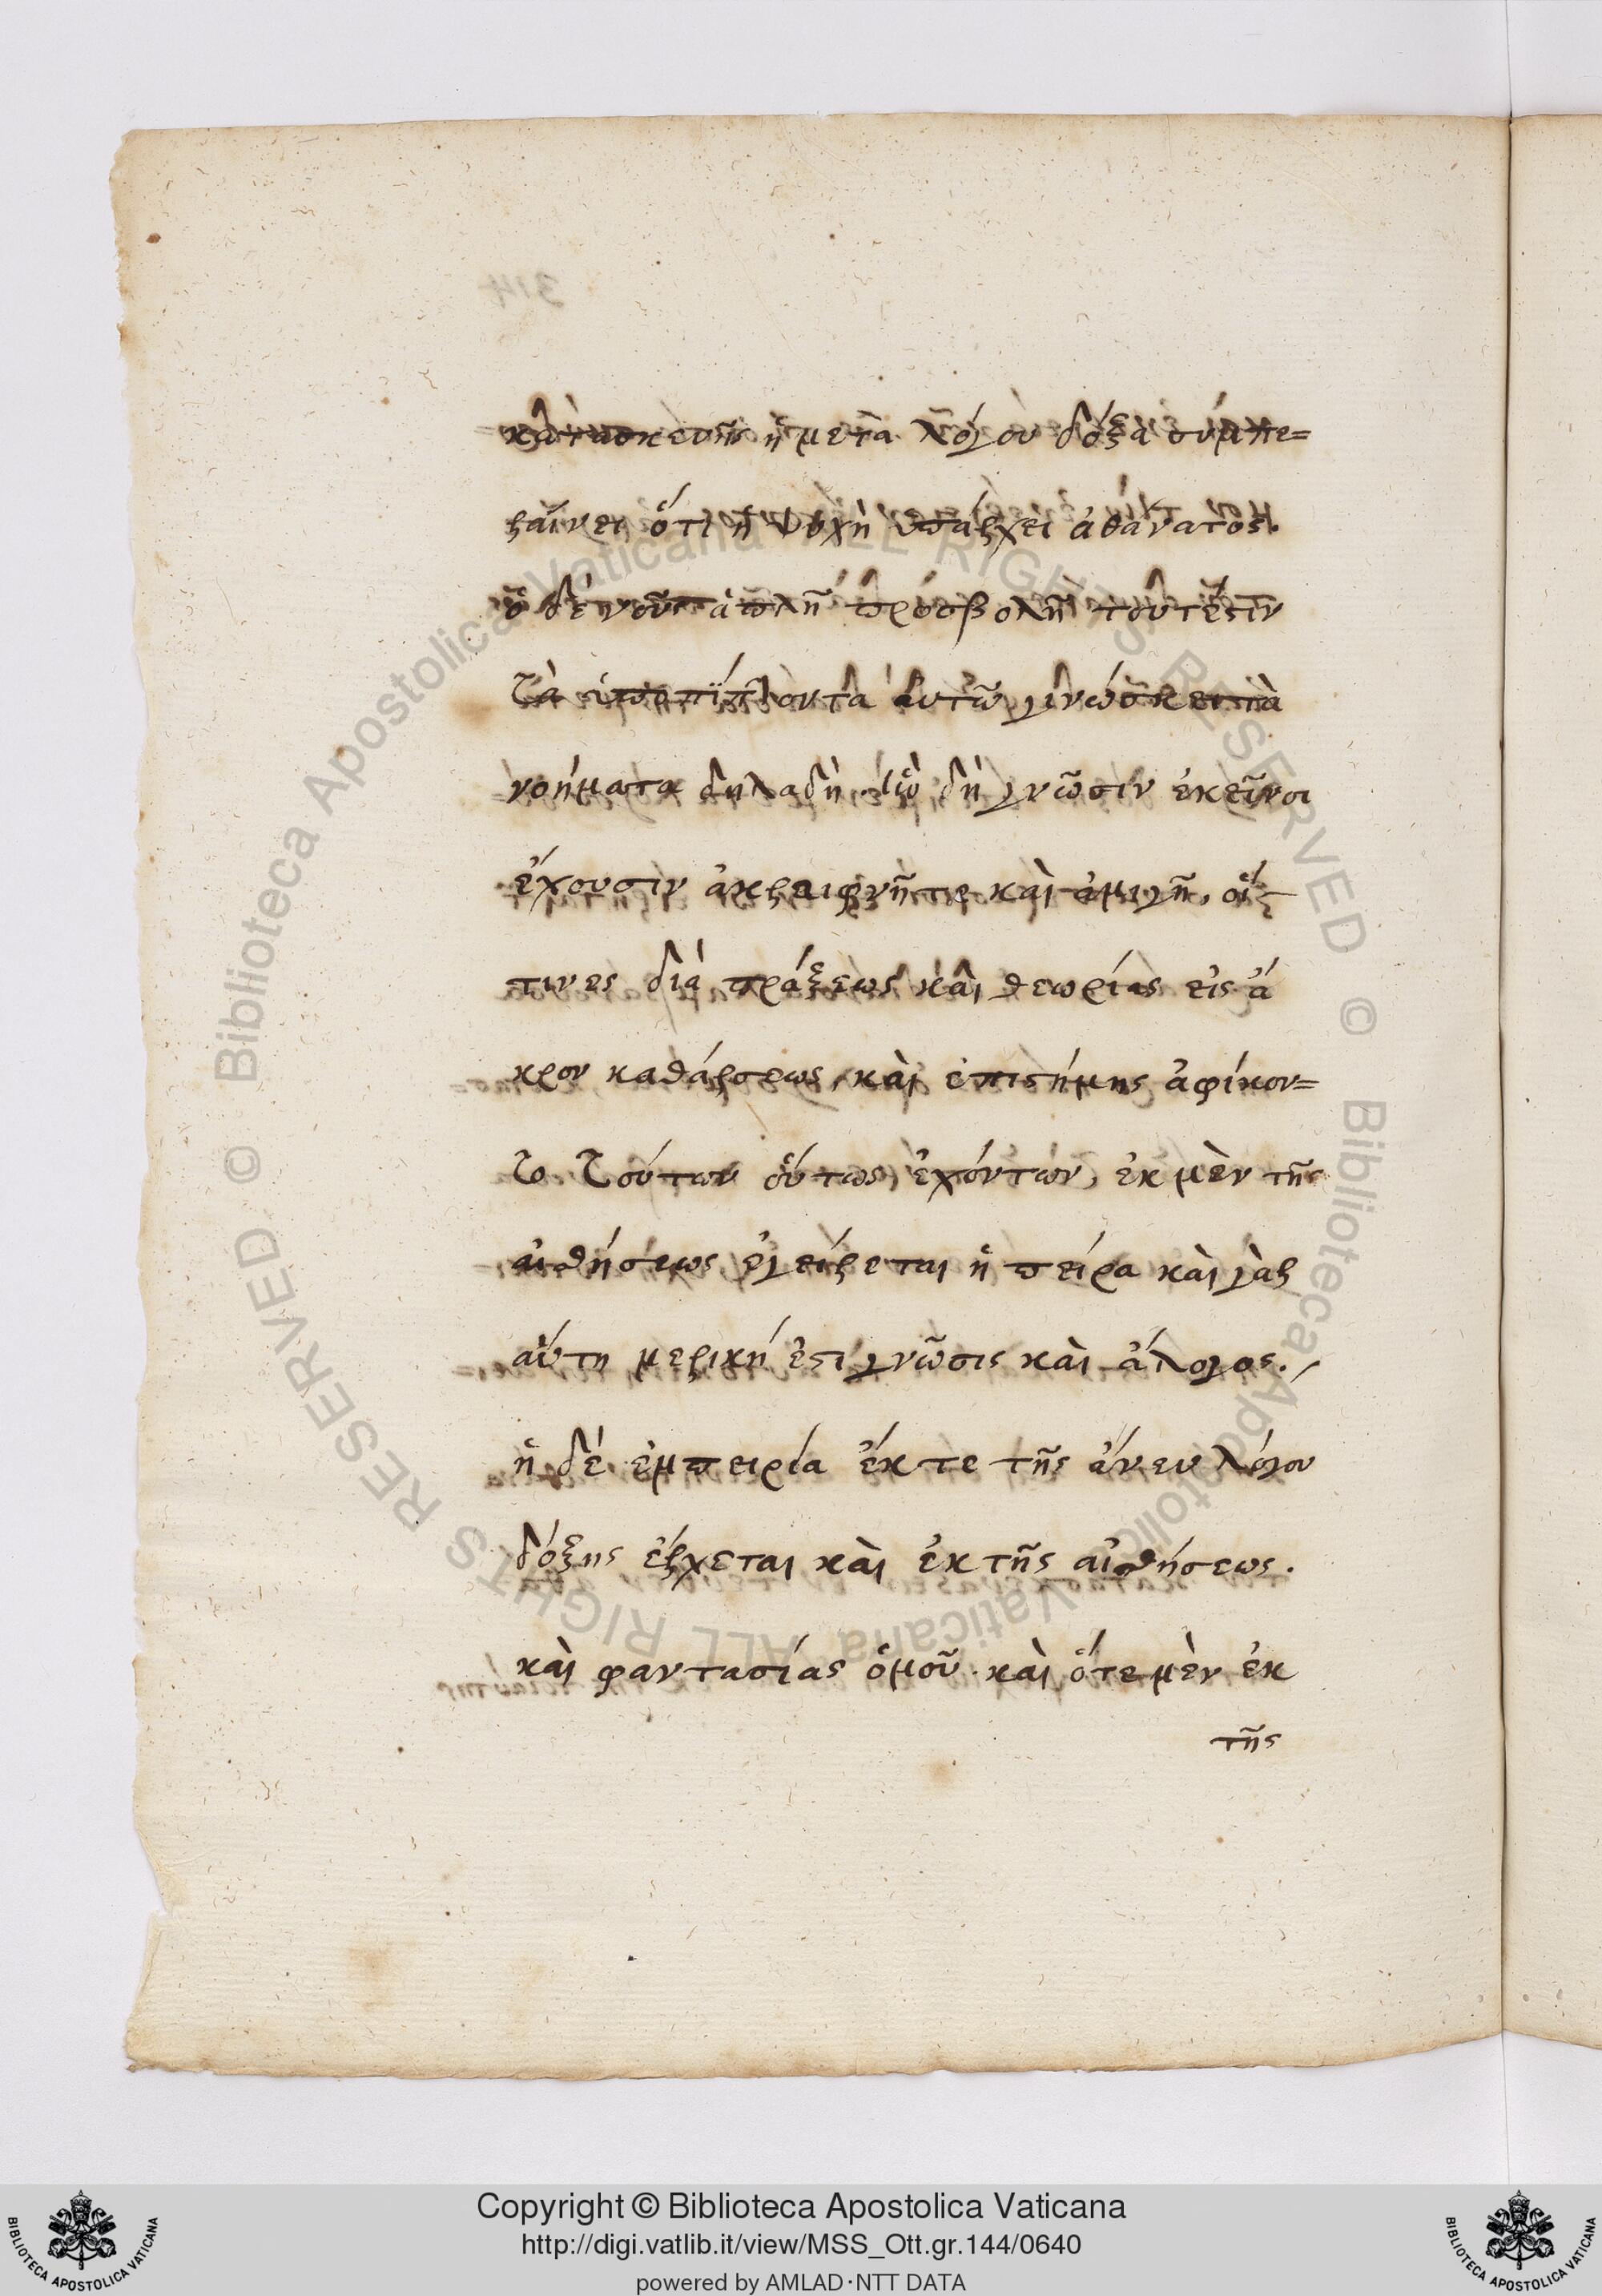 κατασκευῆς ἡ μετὰ λόγου δόξα συμπε=
ραίνει ὅτι ἡ ψυχὴ ὑπάρχει ἀθάνατος.
ὁ δὲ νοῦς ἁπλῇ προσβολῇ τουτέστιν
τὰ ὑποπίπτοντα αὐτῷ γινώσκει τὰ
νοήματα δηλαδὴ. ἣν δὴ γνῶσιν ἐκεῖνοι
ἔχουσιν ἀκραιφνῆ τε καὶ ἀμιγῆ, οἵ
τινες διὰ πράξεως καὶ θεωρίας εἰς ἄ
κρον καθάρσεως, καὶ ἐπιστήμης ἀφίκον=
το τούτων οὕτως ἐχόντων, ἐκ μὲν τῆς
αἰσθήσεως ἐγείρεται ἡ πείρα καὶ γὰρ
αὕτη μερική ἐστι γνῶσις καὶ ἄλογος.
ἡ δέ ἐμπειρία ἔκ τε τῆς ἄνευ λόγου
δόξης ἔρχεται καὶ ἐκ τῆς αἰσθήσεως.
καὶ φαντασίας ὁμοῦ. καὶ ὅτε μὲν ἐκ
τῆς
314
Copyright © Biblioteca Apostolica Vaticana
http://digi.vatlib.it/view/MSS_Ott.gr.144/0640
powered by AMLAD·NTT DATA
BIBLIOTECA APOSTOLICA VATICANA
BIBLIOTECA APOSTOLICA VATICANA
© Biblioteca Apostolica Vaticana ALL RIGHTS RESERVED © Biblioteca Apostolica Vaticana ALL RIGHTS RESERVED